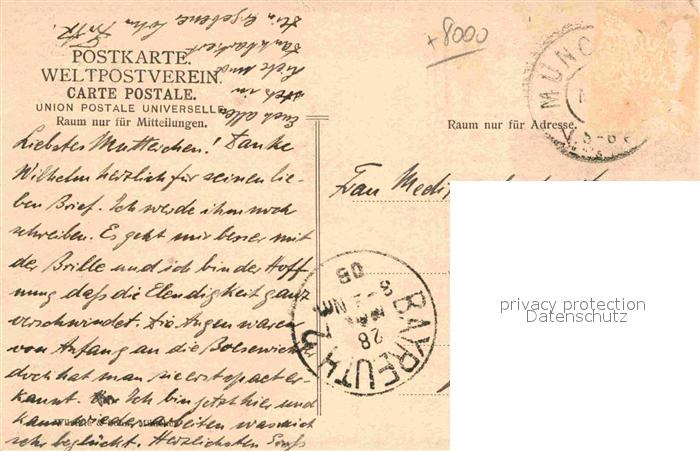 +8000
POSTKARTE.
WELTPOSTVEREIN.
CARTE POSTALE.
UNION POSTALE UNIVERSELLE
Raum nur für Mitteilungen.
Raum nur für Adresse.
Liebstes Mutterchen! Danke
Wilhelm herzlich für seinen lie-
ben Brief. Ich werde ihm noch
schreiben. Es geht mir besser mit
der Brille und ich bin der Hoff
nung daß die Elendigkeit ganz
verschwindet. Die Augen waren
von Anfang an die Boesewichte
doch hat man sie erst spaet er-
kannt. Ich bin jetzt hier und
kann wieder arbeiten was mich
sehr beglückt. Herzlichsten Gruß
Euch allen
in
Liebe und
Dankbarkeit
Frau
BAYREUTH
28
08
MUNC
privacy protection
Datenschutz